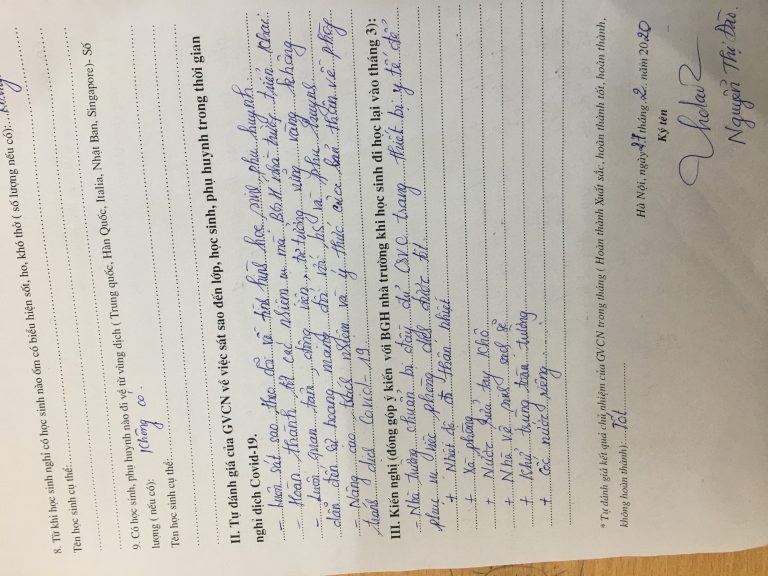 8. Từ khi học sinh nghỉ có học sinh nào ốm có biểu hiện sốt, ho, khó thở ( số lượng nếu có): Không
Tên học sinh cụ thể:
9. Có học sinh, phụ huynh nào đi về từ vùng dịch ( Trung quốc, Hàn Quốc, Italia, Nhật Ban, Singapore)- Số
lượng ( nếu có): Không có.
Tên học sinh cụ thể:
II. Tự đánh giá của GVCN về việc sát sao đến lớp, học sinh, phụ huynh trong thời gian
nghỉ dịch Covid-19.
- Luôn sát sao theo dõi về tình hình học sinh, phụ huynh
- Hoàn thành tốt các nhiệm vụ mà BGH nhà trường triển khai
- Luôn quan tâm, động viên, tư tưởng vững vàng không
dẫn đến sự hoang mang đối với hs và phụ huynh
- Nâng cao trách nhiệm và ý thức của bản thân về phòng
tránh dịch Covid-19
III. Kiến nghị (đóng góp ý kiến với BGH nhà trường khi học sinh đi học lại vào tháng 3):
- Nhà trường chuẩn bị đầy đủ CSVC trang thiết bị y tế để
phục vụ việc phòng dịch được tốt
+ Nhiệt độ đo thân nhiệt
+ Xà phòng
+ Nước rửa tay khô
+ Nhà vệ sinh sạch sẽ
+ Khử trùng toàn trường
+ Cốc nước riêng
* Tự đánh giá kết quả chủ nhiệm của GVCN trong tháng ( Hoàn thành Xuất sắc, hoàn thành tốt, hoàn thành,
không hoàn thành): Tốt
Hà Nội, ngày 27 tháng 2 năm 2020
Ký tên
Nguyễn Thị Đào